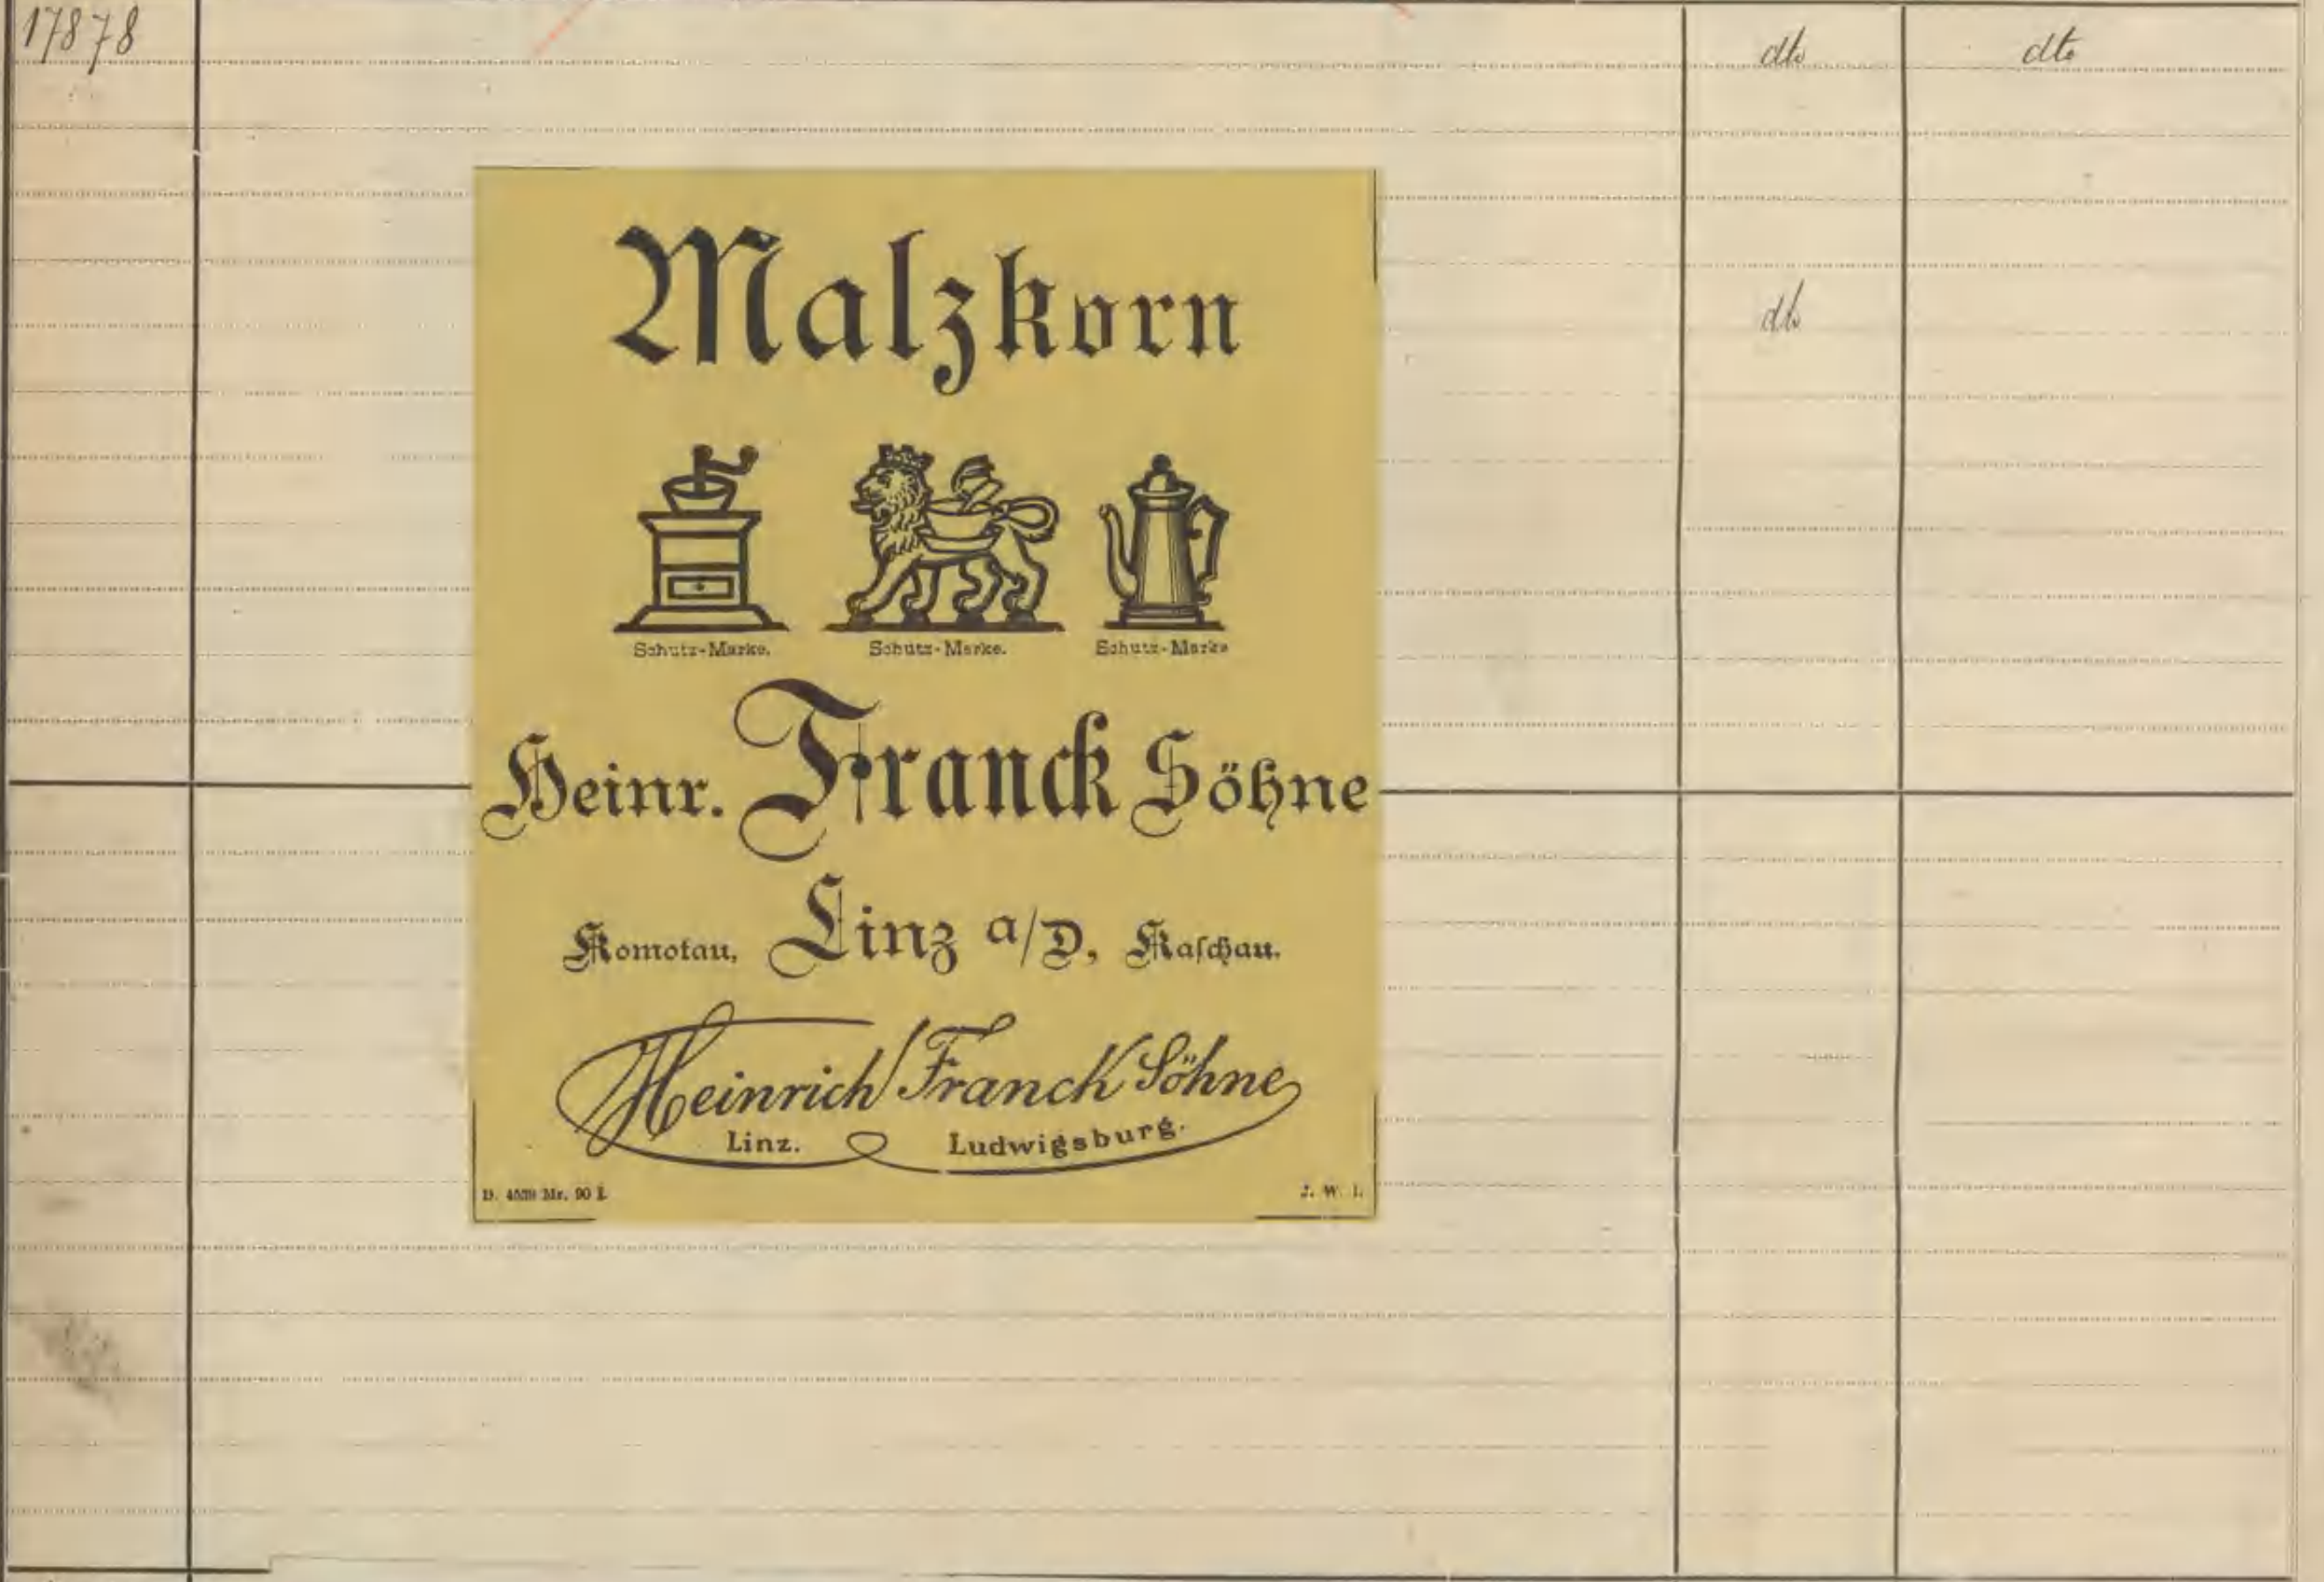 17878 dto dto
dto
Malzkorn
Schutz-Marke. Schutz-Marke. Schutz-Marke
Heinr. Franck Söhne
Komotau, Linz a/D, Kaschau.
Heinrich Franck Söhne
Linz. Ludwigsburg.
Nr. 90 J. W. I.